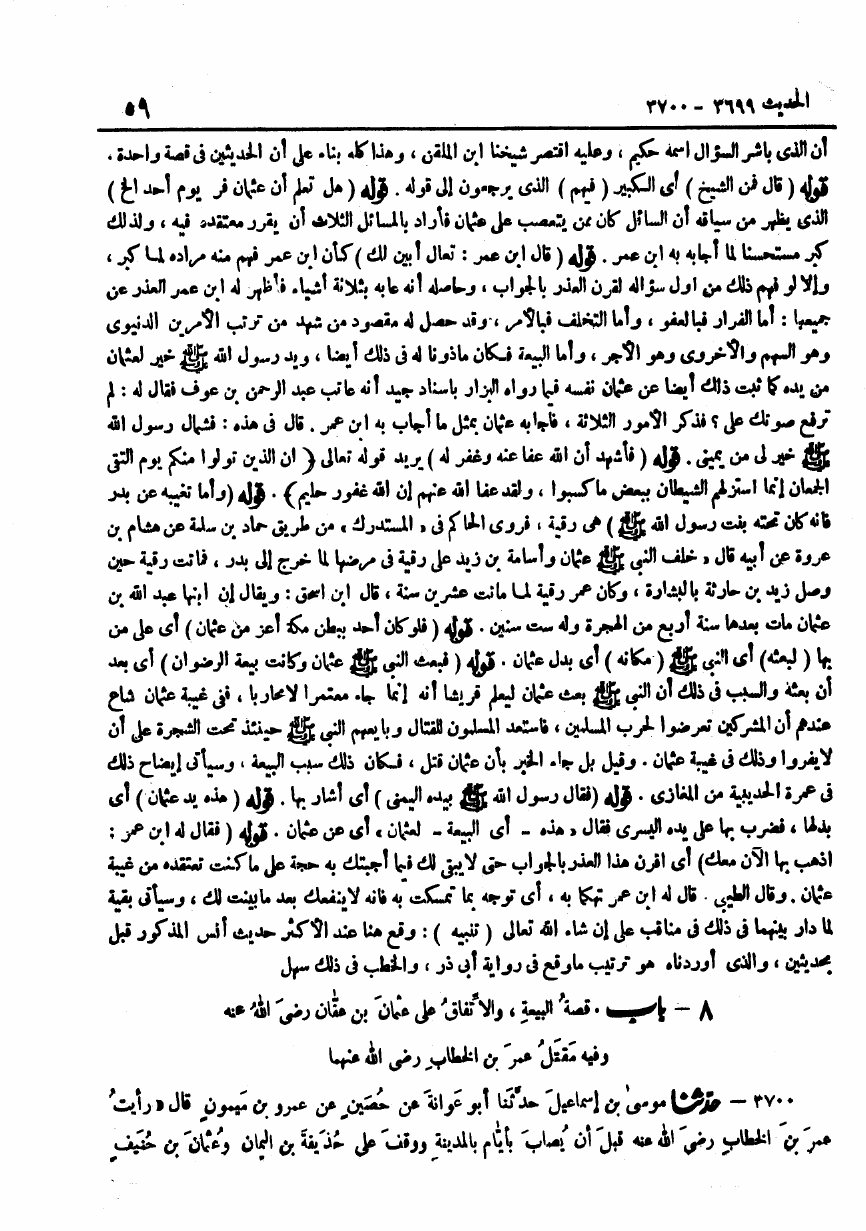 الحديث ٣٦٩٩ - ٣٧٠٠
٥٩
أن الذى باشر السؤال اسمه حكيم ، وعليه اقتصر شيخنا ابن الملقن ، وهذا كله بناء على أن الحديثين فى قصة واحدة .
قوله ( قال فمن الشيخ ) أى الكبير ( فيهم ) الذى يرجعون إلى قوله . قوله ( هل تعلم أن عثمان فر يوم أحد الخ )
الذى يظهر من سياقه أن السائل كان ممن يتعصب على عثمان فأراد بالمسائل الثلاث أن يقرر معتقده فيه ، ولذلك
كبر مستحسنا لما أجابه به ابن عمر . قوله ( قال ابن عمر : تعال أبين لك ) كأن ابن عمر فهم منه مراده لما كبر ،
وإلا لو فهم ذلك من اول سؤاله لقرن العذر بالجواب ، وحاصله أنه عابه بثلاثة أشياء فأظهر له ابن عمر العذر عن
جميعها : أما الفرار فبالعفو ، وأما التخلف فبالأمر ، وقد حصل له مقصود من شهد من ترتب الأمرين الدنيوى
وهو السهم والأخروى وهو الأجر ، وأما البيعة فكان مأذونا له فى ذلك أيضا ، ويد رسول الله ﷺ خير لعثمان
من يده كما ثبت ذلك أيضا عن عثمان نفسه فيما رواه البزار باسناد جيد أنه عاتب عبد الرحمن بن عوف فقال له : لم
ترفع صوتك على ؟ فذكر الأمور الثلاثة ، فأجابه عثمان بمثل ما أجاب به ابن عمر . قال فى هذه : فشمال رسول الله
ﷺ خير لى من يمينى . قوله ( فأشهد أن الله عفا عنه وغفر له ) يريد قوله تعالى ﴿ ان الذين تولوا منكم يوم التقى
الجمعان إنما استزلهم الشيطان ببعض ما كسبوا ، ولقد عفا الله عنهم إن الله غفور حليم ﴾ . قوله ( وأما تغيبه عن بدر
فانه كان تحته بنت رسول الله ﷺ ) هى رقية ، فروى الحاكم فى « المستدرك » من طريق حماد بن سلمة عن هشام بن
عروة عن أبيه قال « خلف النبى ﷺ عثمان وأسامة بن زيد على رقية فى مرضها لما خرج إلى بدر ، فماتت رقية حين
وصل زيد بن حارثة بالبشارة ، وكان عمر رقية لما ماتت عشرين سنة ، قال ابن اسحق : ويقال إن ابنها عبد الله بن
عثمان مات بعدها سنة أربع من الهجرة وله ست سنين . قوله ( فلو كان أحد ببطن مكة أعز من عثمان ) أى على من
بها ( لبعثه ) أى النبى ﷺ ( مكانه ) أى بدل عثمان . قوله ( فبعث النبى ﷺ عثمان وكانت بيعة الرضوان ) أى بعد
أن بعثه والسبب فى ذلك أن النبى ﷺ بعث عثمان ليعلم قريشا أنه إنما جاء معتمرا لا محاربا ، ففى غيبة عثمان شاع
عندهم أن المشركين تعرضوا لحرب المسلمين ، فاستعد المسلمون للقتال وبايعهم النبى ﷺ حينئذ تحت الشجرة على أن
لا يفروا وذلك فى غيبة عثمان . وقيل بل جاء الخبر بأن عثمان قتل ، فكان ذلك سبب البيعة ، وسيأتى إيضاح ذلك
فى عمرة الحديبية من المغازى . قوله ( فقال رسول الله ﷺ بيده اليمنى ) أى أشار بها . قوله ( هذه يد عثمان ) أى
بدلها ، فضرب بها على يده اليسرى فقال « هذه - أى البيعة - لعثمان » أى عن عثمان . قوله ( فقال له ابن عمر :
اذهب بها الآن معك ) أى اقرن هذا العذر بالجواب حتى لا يبقى لك فيما أجبتك به حجة على ما كنت تعتقده من غيبة
عثمان . وقال الطيبى . قال له ابن عمر تهكما به ، أى توجه بما تمسكت به فانه لا ينفعك بعد ما بينت لك ، وسيأتى بقية
لما دار بينهما فى ذلك فى مناقب على إن شاء الله تعالى ( تنبيه ) : وقع هنا عند الأكثر حديث أنس المذكور قبل
بحديثين ، والذى أوردناه هو ترتيب ما وقع فى رواية أبى ذر ، والخطب فى ذلك سهل
٨ - باب . قصةُ البيعةِ ، والاتِّفاقُ على عثمانَ بن عفَّان رضىَ اللهُ عنه
وفيه مَقتَلُ عمرَ بن الخطابِ رضى الله عنهما
٣٧٠٠ - حدثنا موسىٰ بن إسماعيلَ حدَّثَنا أبو عَوانةَ عن حُصَينٍ عن عمرو بن مَيمونٍ قال « رأيتُ
عمرَ بنَ الخطابِ رضىَ الله عنه قبلَ أن يُصابَ بأيّام بالمدينةِ ووقفَ على حُذَيفةَ بن اليمانِ وعُثمانَ بن حُنَيفٍ